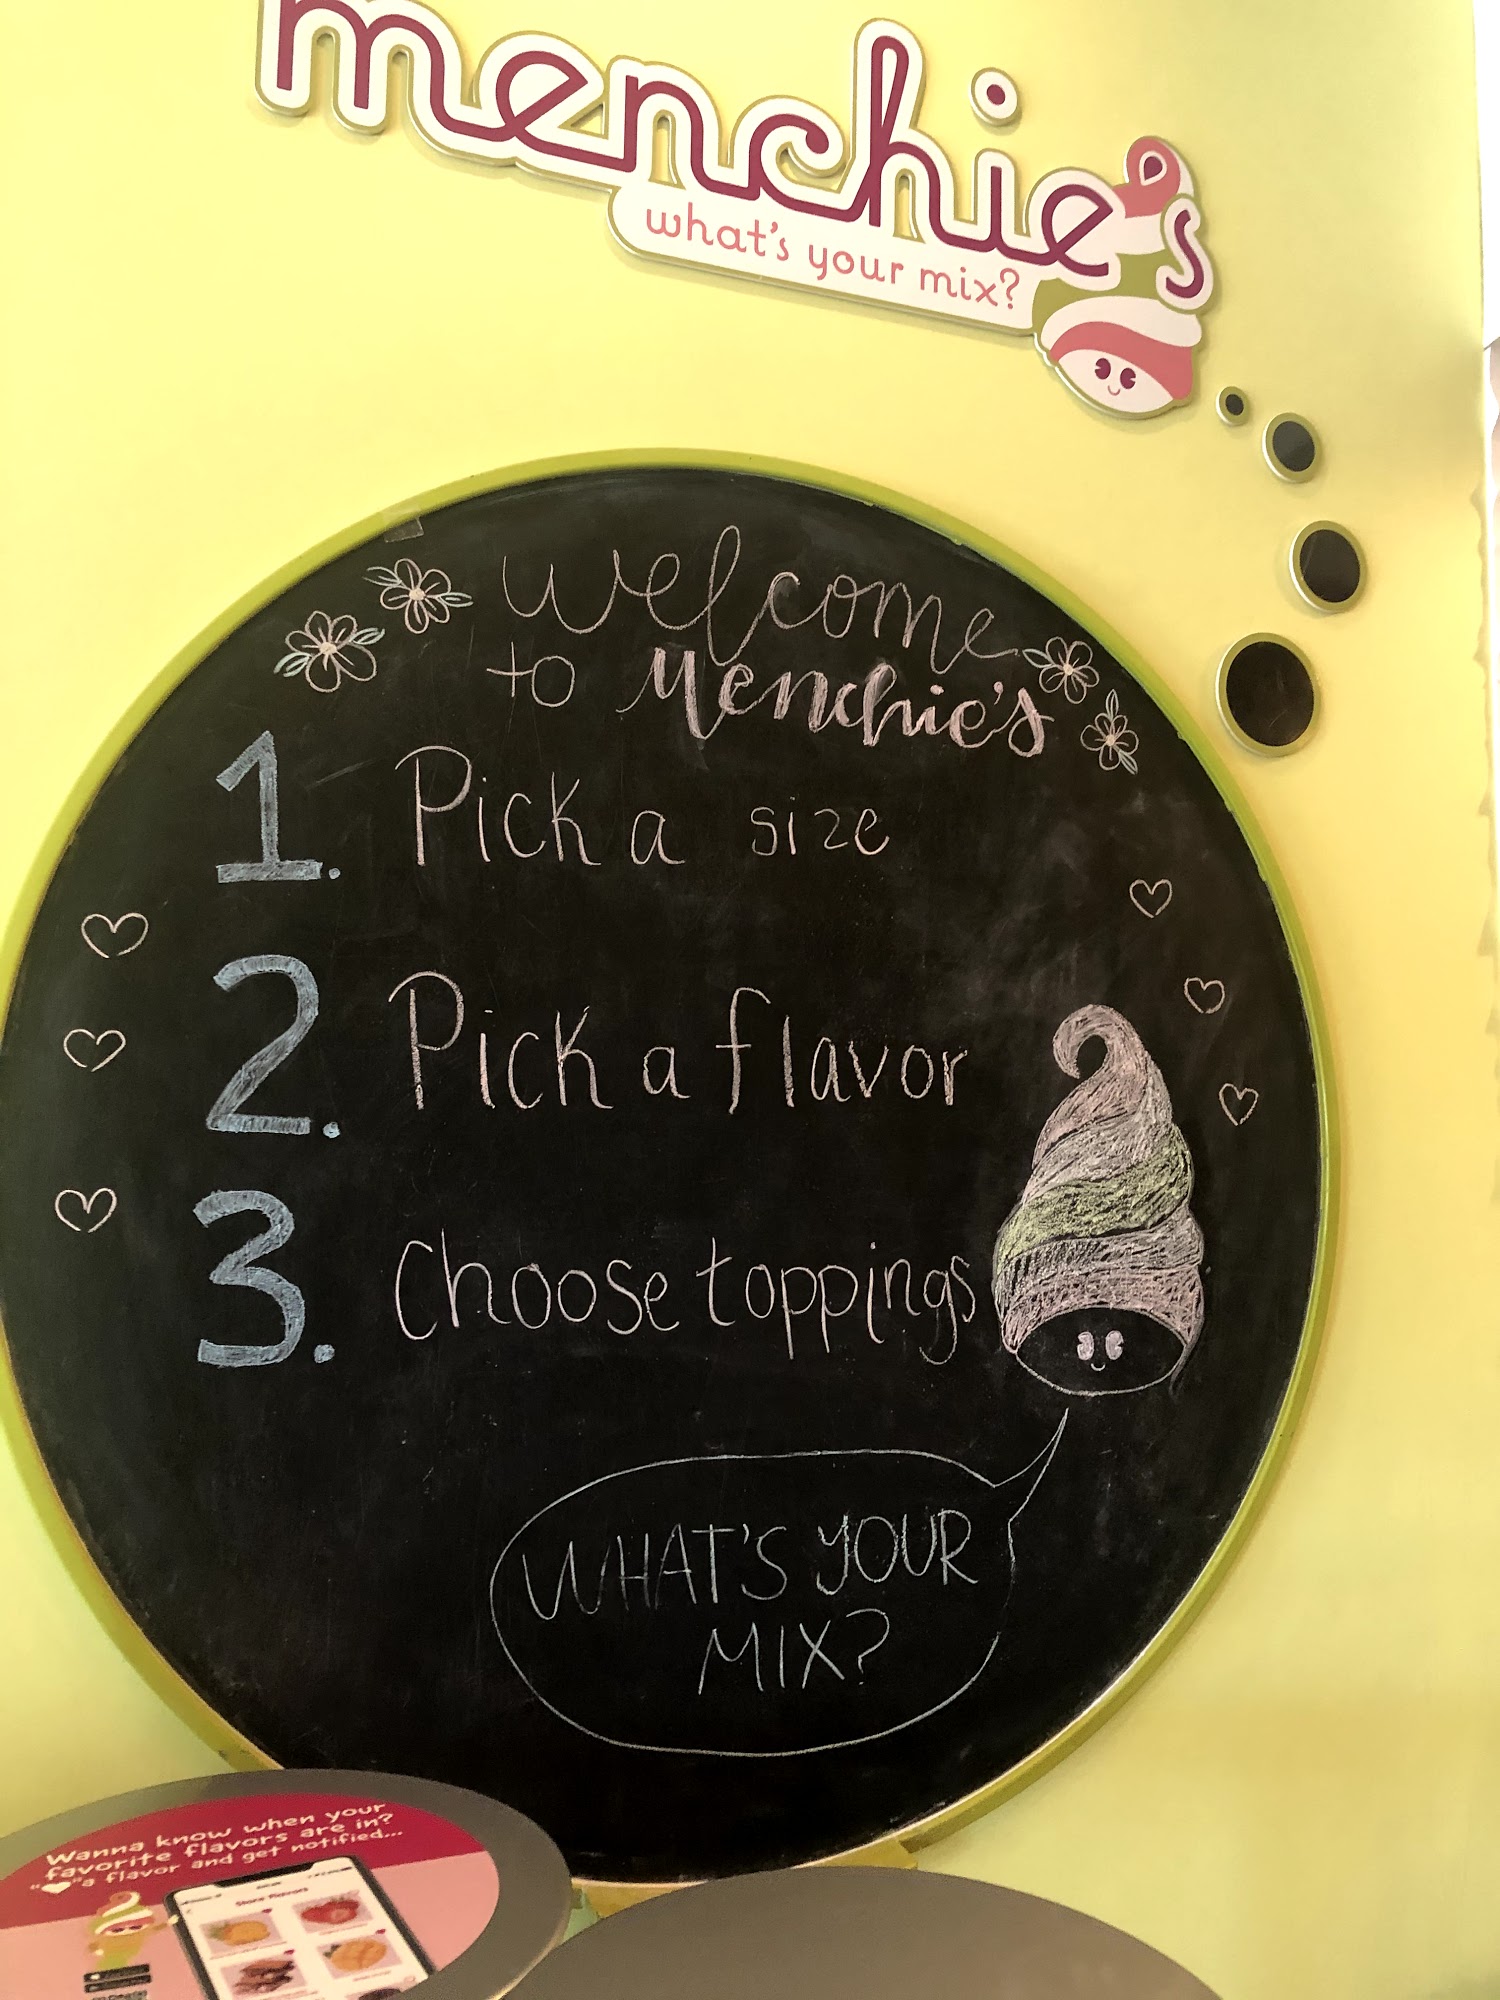 menchie's
what's your mix?
welcome
to Menchie's
1. Pick a size
2. Pick a flavor
3. Choose toppings
WHAT'S YOUR
MIX?
Wanna know when your
favorite flavors are in?
"♥"a flavor and get notified...
Store Flavors